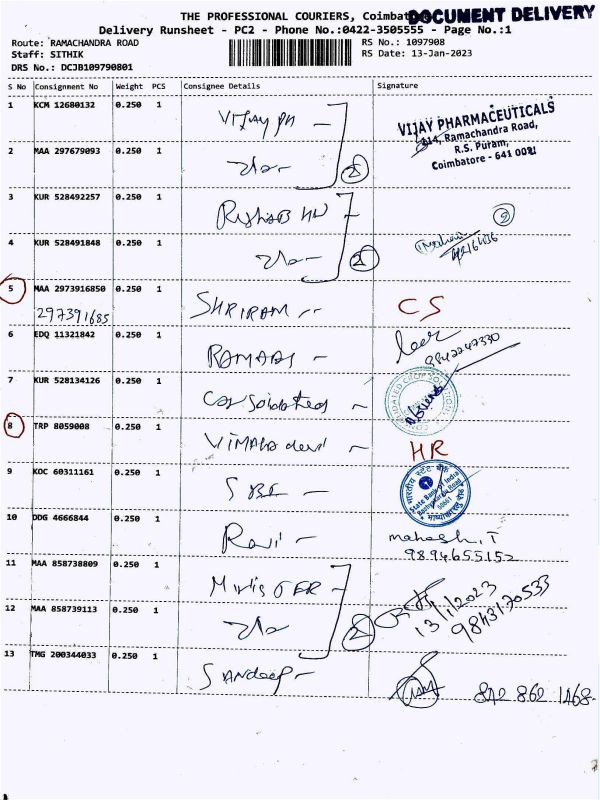 THE PROFESSIONAL COURIERS, Coimbatore
DOCUMENT DELIVERY
Delivery Runsheet - PC2 - Phone No.:0422-3505555 - Page No.:1
Route: RAMACHANDRA ROAD RS No.: 1097908
Staff: SITHIK RS Date: 13-Jan-2023
DRS No.: DCJB109790801
S No Consignment No Weight PCS Consignee Details Signature
1 KCM 12680132 0.250 1 Vijay PH
VIJAY PHARMACEUTICALS
114, Ramachandra Road,
R.S. Puram,
Coimbatore - 641 002
2 MAA 297679093 0.250 1 2
3 KUR 528492257 0.250 1
4 KUR 528491848 0.250 1 2
5 MAA 2973916850 0.250 1 SHRIRAM CS
297391685
6 EDQ 11321842 0.250 1
9842247330
7 KUR 528134126 0.250 1 Consolidated
CONSOLIDATED CROP SOLUTIONS
8 TRP 8059008 0.250 1 VIMALA devi HR
9 KOC 60311161 0.250 1 SBI
भारतीय स्टेट बैंक
State Bank of India
10 DDG 4666844 0.250 1 Ravi mahesh.T
9894655152
11 MAA 858738809 0.250 1
13/1/2023
9843170533
12 MAA 858739113 0.250 1 2
13 TMG 200344033 0.250 1 SANdeep